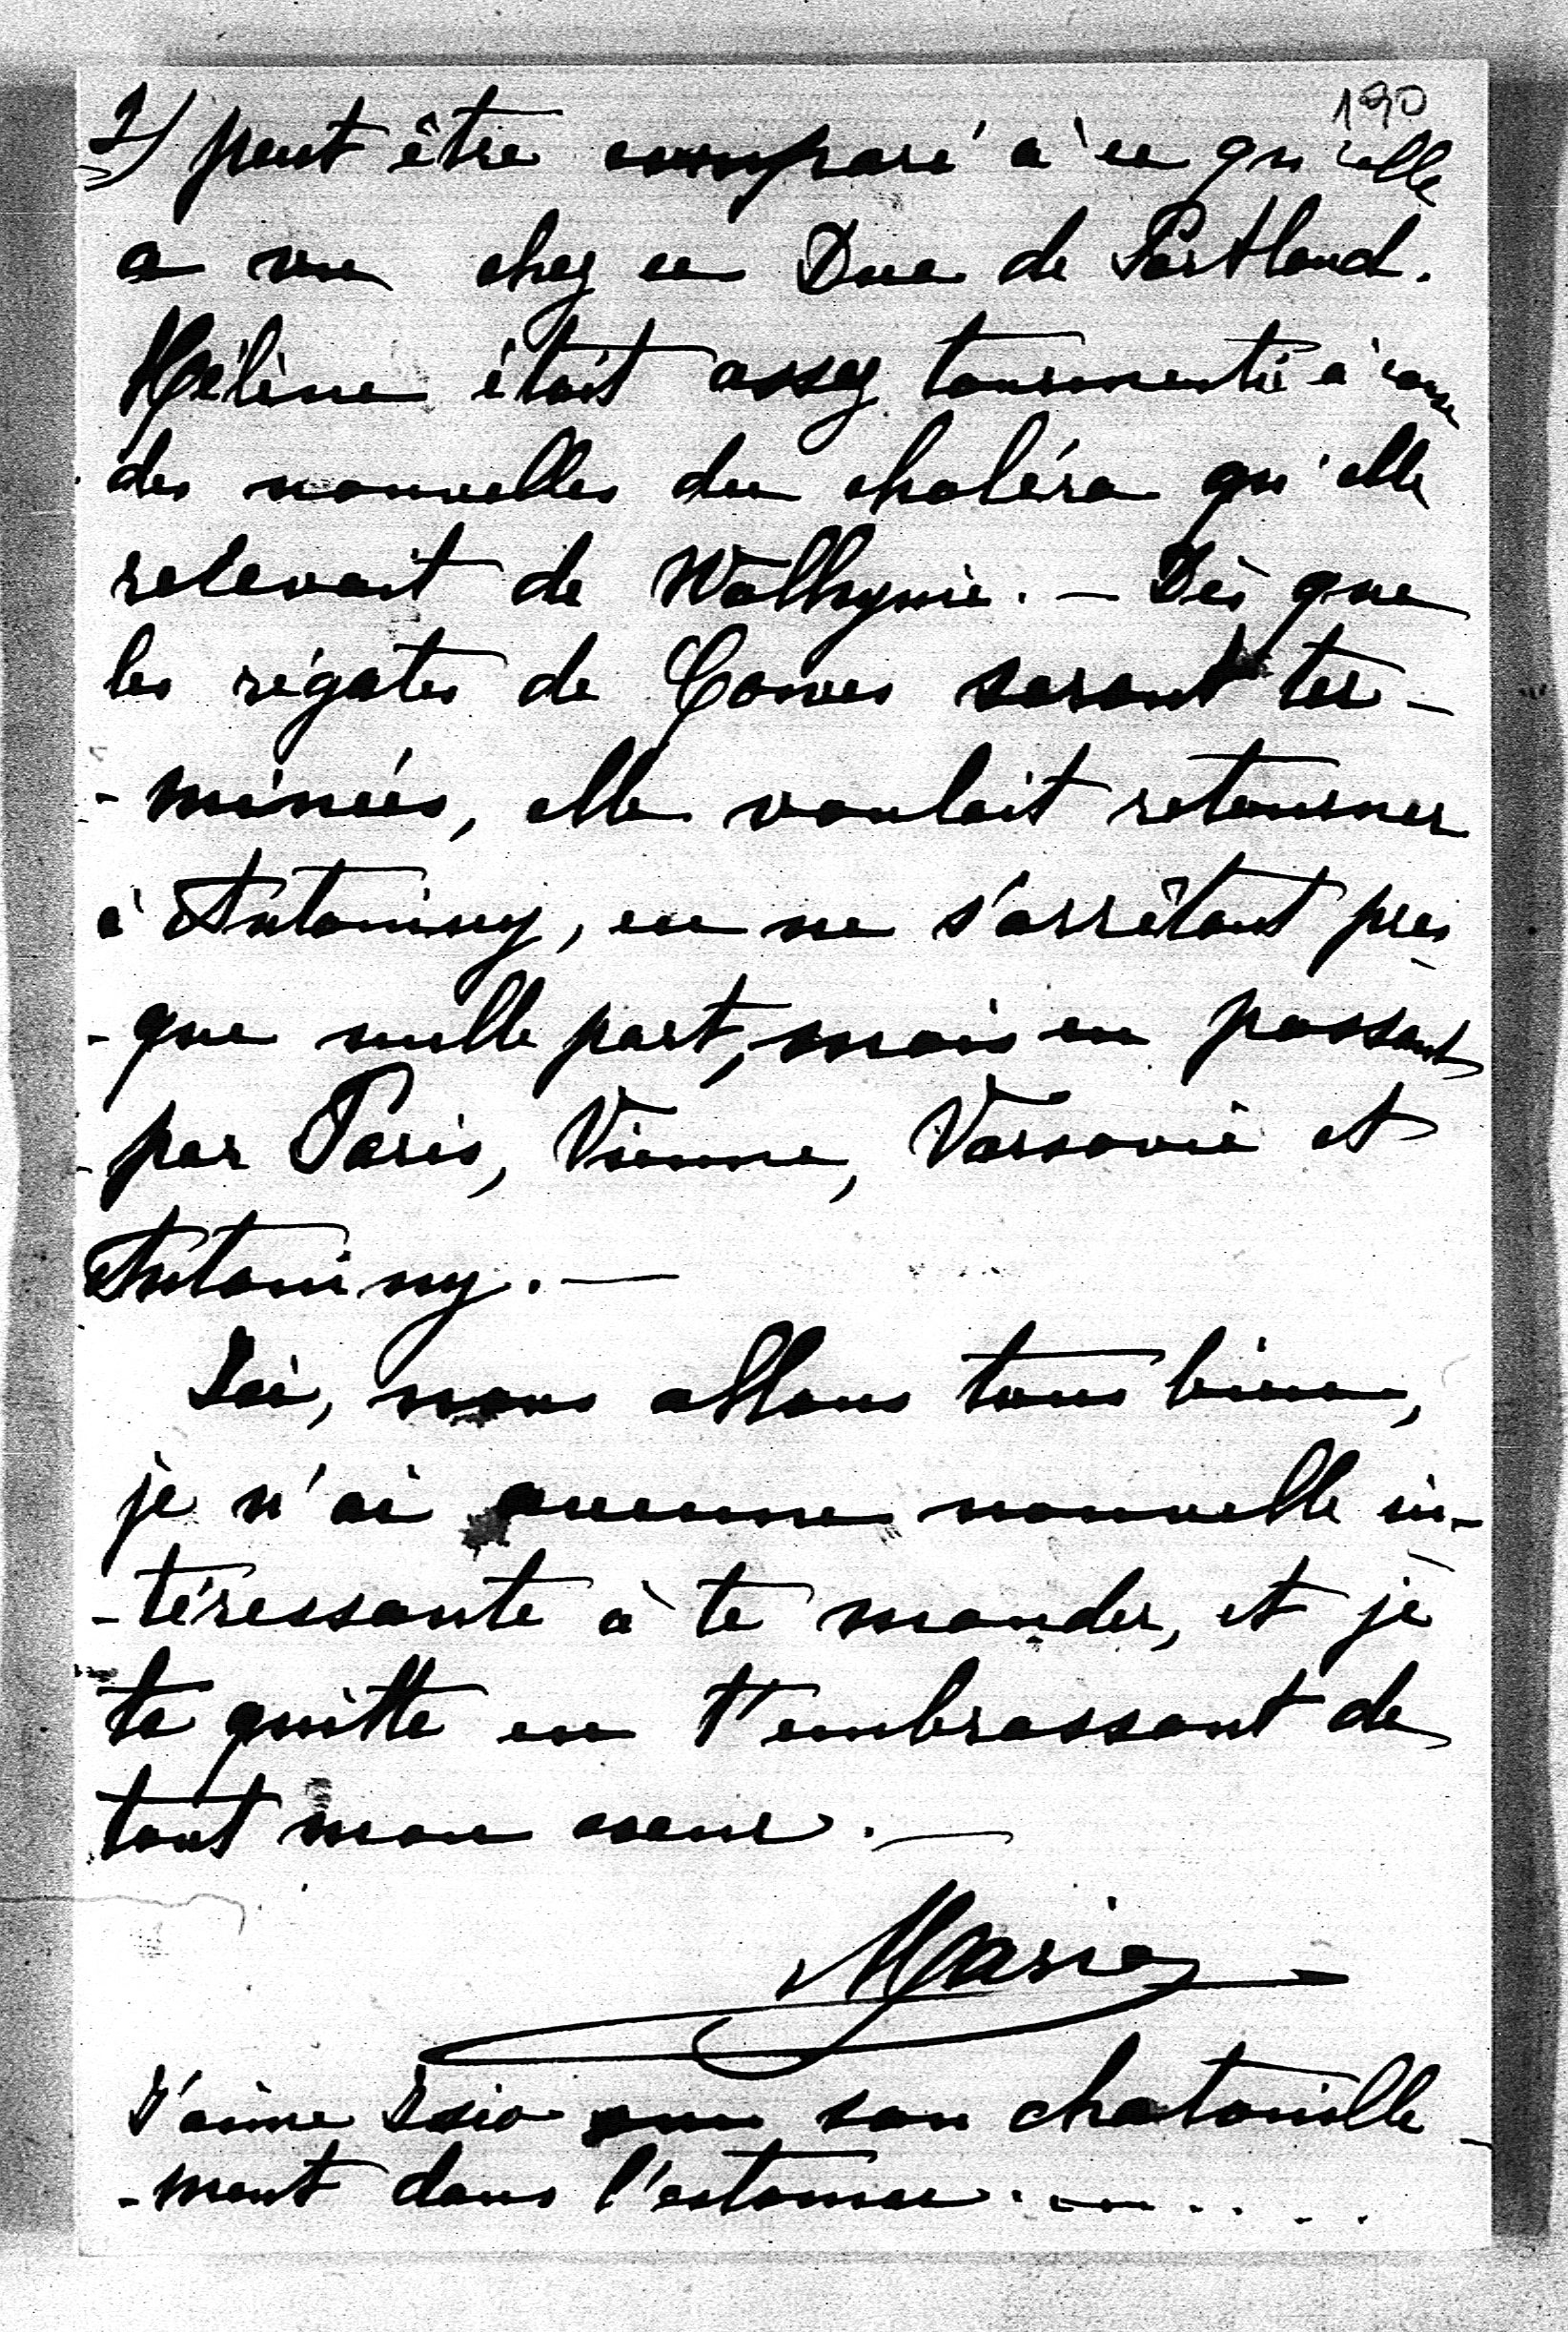 190
2/ peut être comparé à ce qu'elle
a vu chez ce Duc de Portland.
Hélène était assez tourmentée à cause
des nouvelles du choléra qu'elle
recevait de Wolhynie. — Dès que
les régates de Cowes seront ter-
-minées, elle voulait retourner
à Antoniny, en ne s'arrêtant pres
-que nulle part, mais en passant
par Paris, Vienne, Varsovie et
Antoniny. —
Ici, nous allons tous bien,
je n'ai aucune nouvelle in-
-téressante à te mander, et je
te quitte en t'embrassant de
tout mon cœur. —
Marie
J'aime son chatouille-
-ment dans l'estomac.